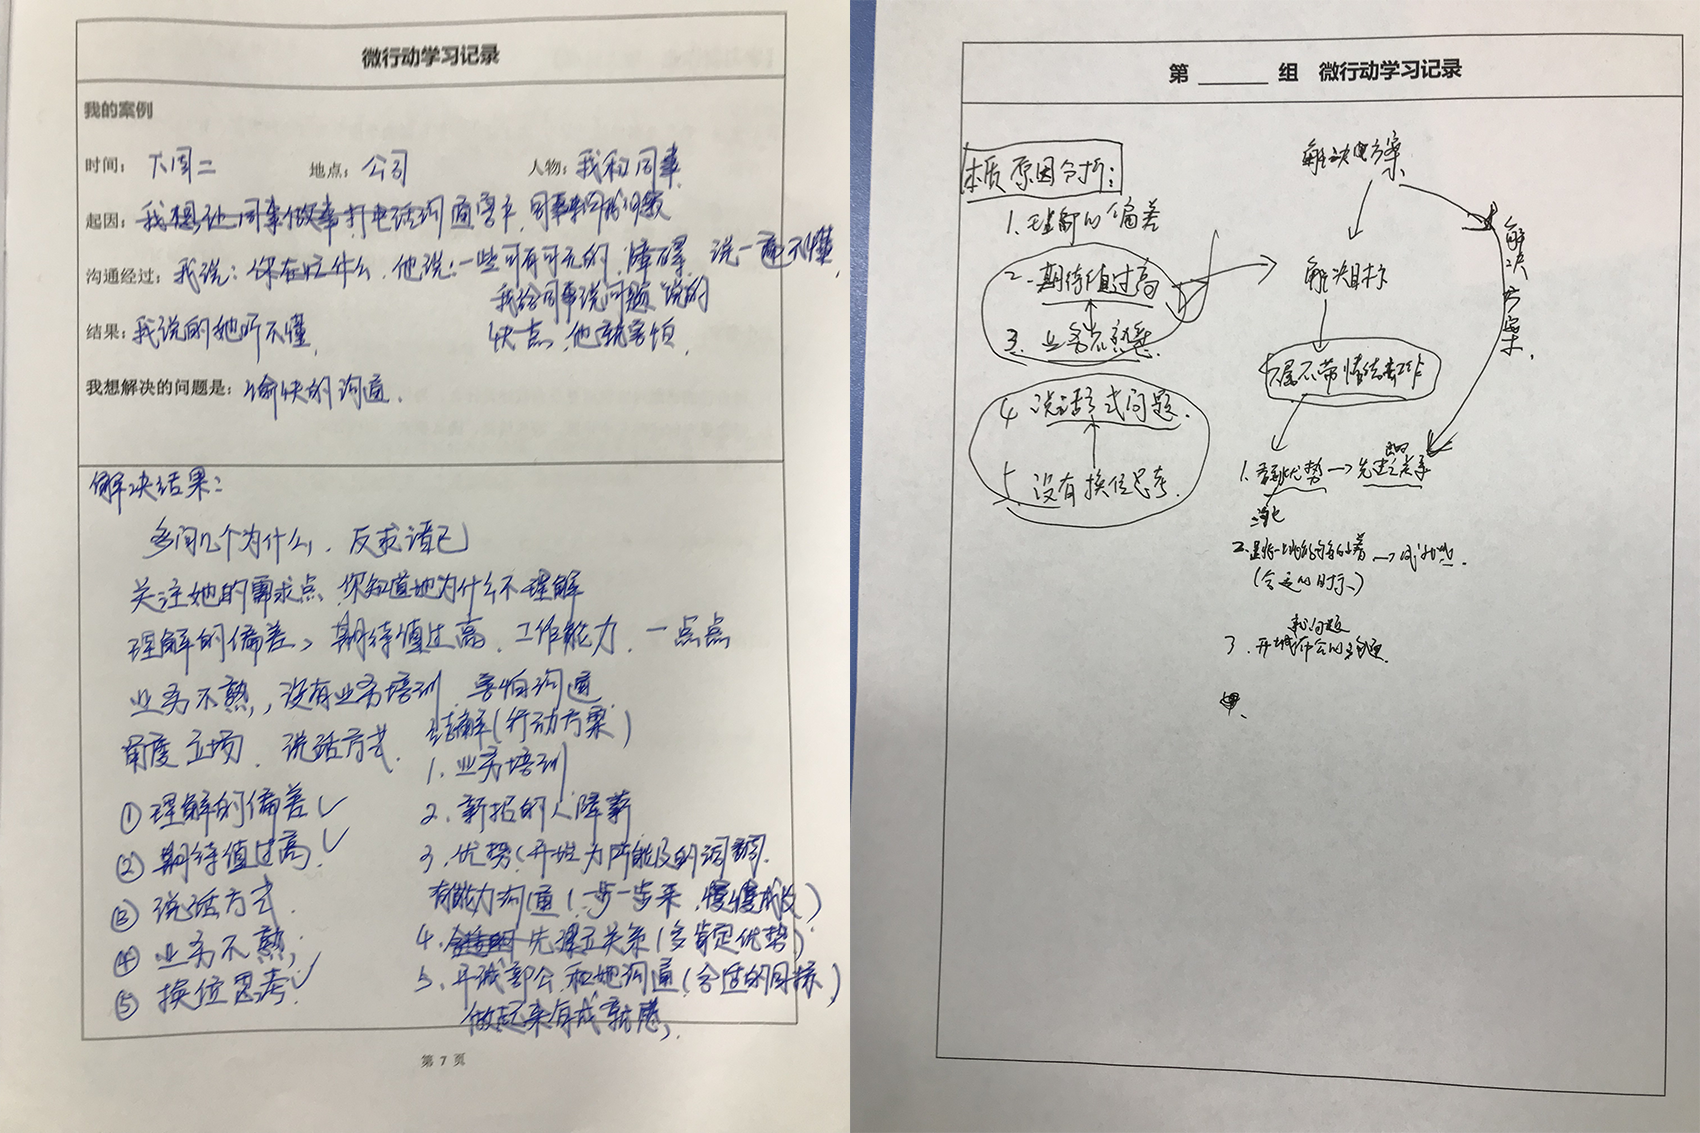 微行动学习记录
我的案例
时间： 下周二 地点： 公司 人物：我和同事
起因：我想让同事做事打电话沟通客户，同事来问我问题
沟通经过：我说：你在忙什么，他说：一些可有可无的，障碍，说一遍不懂，
我给同事说问题说的
结果：我说的她听不懂， 快点，他就害怕，
我想解决的问题是： 愉快的沟通．
解决结果：
多问几个为什么，反求诸己
关注她的需求点，你知道她为什么不理解
理解的偏差、期待值过高、工作能力、一点点
业务不熟，没有业务培训 害怕沟通
角度立场、说话方式．
①理解的偏差✓
②期待值过高✓
③说话方式．
④业务不熟；
⑤换位思考✓
(行动方案)
1、业务培训
2、新招的人降薪
3、优势(开始力所能及的
有能力沟通(一步一步来，慢慢成长)
4、先建立关系(多肯定优势)
5、开诚布公，和她沟通(合适的目标)
做起来有成就感，
第 7 页
第 组 微行动学习记录
本质原因分析：
1、理解的偏差
2、期待值过高
3、业务不熟悉
4、说话方式问题．
5、没有换位思考．
解决方案
解决目标
解决方案．
下属不带情绪去工作
1、看到优势→先建立关系
2、
(合适的目标)
和问题
3、开诚布公的沟通